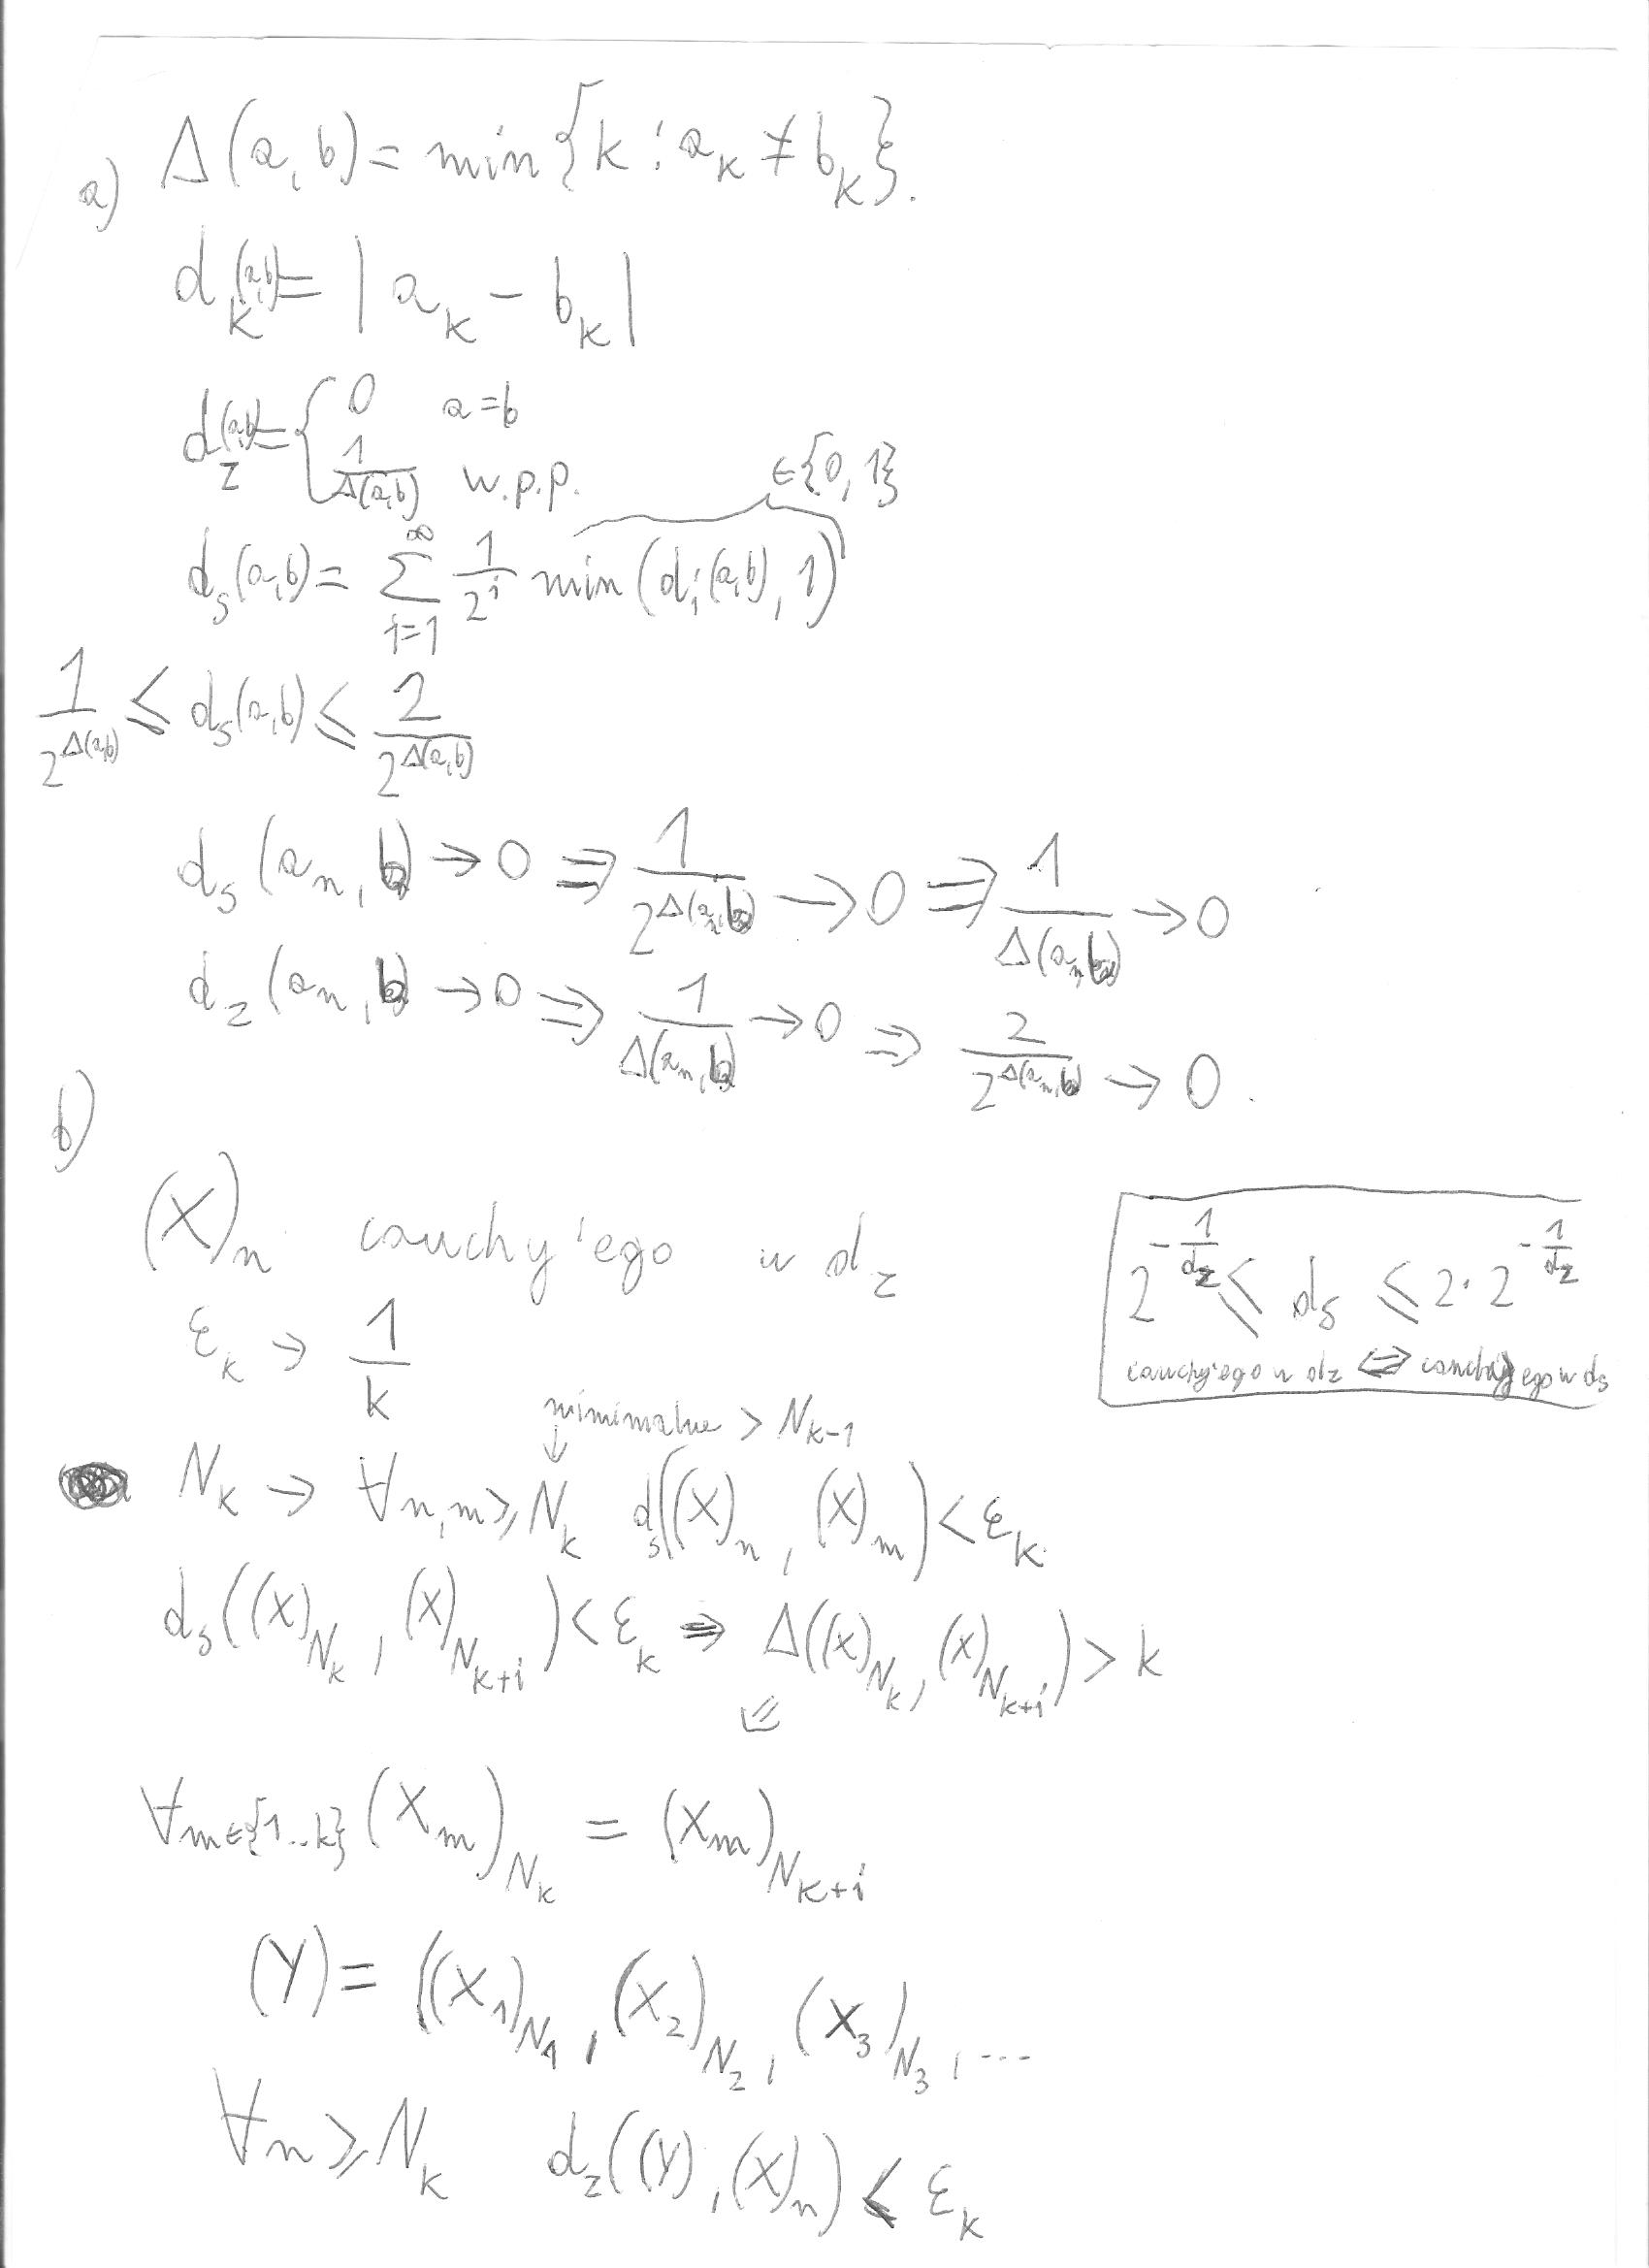 a) Δ(a,b) = min{k : a_k ≠ b_k}.
d_k(a,b) = |a_k - b_k|
d_z(a,b) = { 0 a=b
1/Δ(a,b) w.p.p.
∈{0,1}
d_s(a,b) = ∑_{i=1}^{∞} 1/2^i min(d_i(a,b), 1)
1/2^{Δ(a,b)} ≤ d_s(a,b) ≤ 2/2^{Δ(a,b)}
d_s(a_n, b) → 0 ⇒ 1/2^{Δ(a_n,b)} → 0 ⇒ 1/Δ(a_n,b) → 0
d_z(a_n, b) → 0 ⇒ 1/Δ(a_n,b) → 0 ⇒ 2/2^{Δ(a_n,b)} → 0.
b)
(X)_n cauchy'ego w d_z
2^{-1/d_z} ≤ d_s ≤ 2·2^{-1/d_z}
cauchy'ego w d_z ⇔ cauchy'ego w d_s
ε_k → 1/k
minimalne > N_{k-1}
↓
N_k → ∀n,m ≥ N_k d_s((X)_n, (X)_m) < ε_k
d_s((X)_{N_k}, (X)_{N_{k+i}}) < ε_k ⇒ Δ((X)_{N_k}, (X)_{N_{k+i}}) > k
⇐
∀m∈{1..k} (X_m)_{N_k} = (X_m)_{N_{k+i}}
(Y) = ((X_1)_{N_1}, (X_2)_{N_2}, (X_3)_{N_3}, ...
∀n ≥ N_k d_z((Y), (X)_n) ≤ ε_k